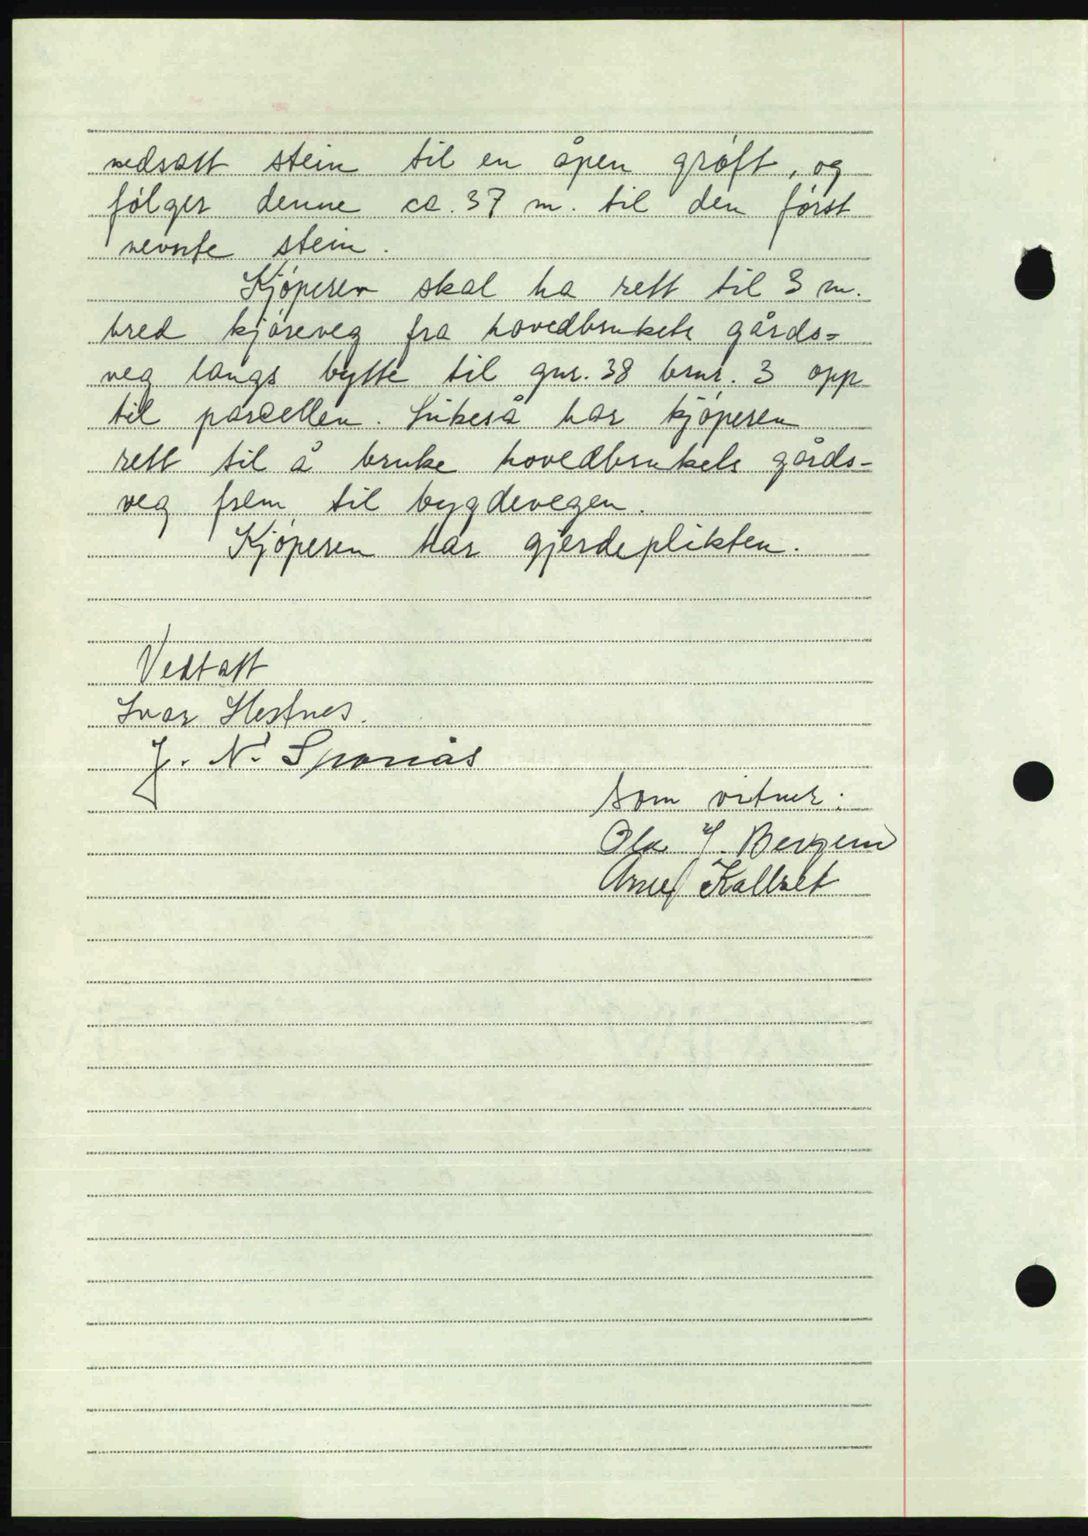 nedsatt stein til en åpen grøft, og
følger denne ca. 37 m. til den først
nevnte stein.
Kjøperen skal ha rett til 3 m.
bred kjøreveg fra hovedbrukets gårds=
veg langs bytte til gnr. 38 brnr. 3 opp
til parcellen. Likeså har kjøperen
rett til å bruke hovedbrukets gårds-
veg frem til bygdevegen.
Kjøperen har gjerdeplikten.
Vedtatt
Ivar Hestnes.
J. N.
som vitner:
Ola J. Bergem
Kallset